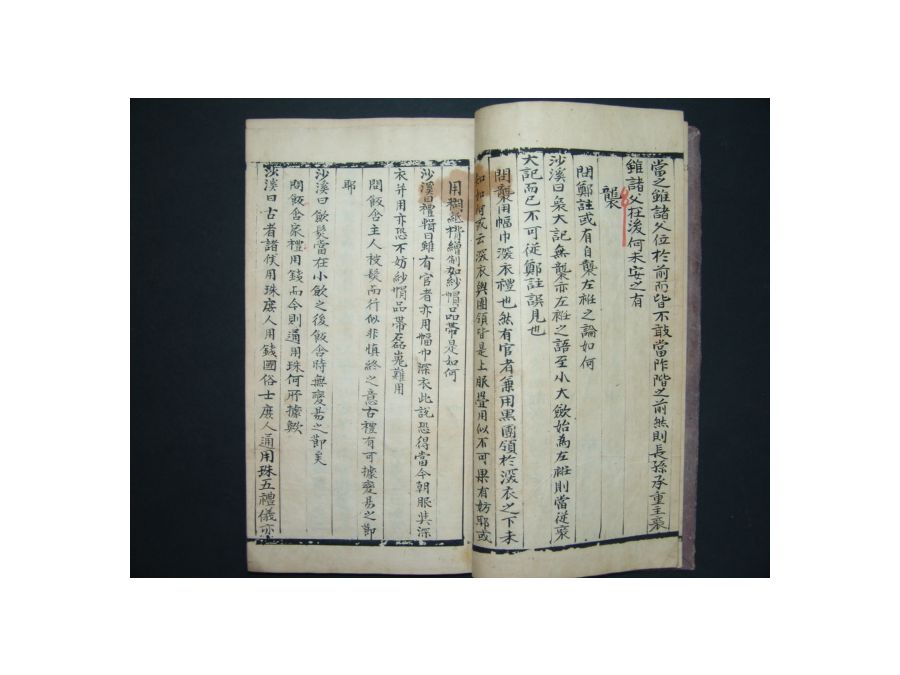 當之雖諸父位於前而皆不敢當阼階之前然則長孫承重主喪
雖諸父在後何未安之有
襲
問鄭註或有自襲左袵之論如何
沙溪曰喪大記無襲亦左袵之語至小大斂始爲左袵則當從喪
大記而已不可從鄭註誤見也
問襲用幅巾深衣禮也然有官者兼用黑團領於深衣之下未
知如何或云深衣與團領皆是上服疊用似不可果有妨耶或
用糊紙揩繒制如紗帽品帶是如何
沙溪曰禮輯曰雖有官者亦用幅巾深衣此說恐得當今朝服其深
衣幷用亦恐不妨紗帽品帶磊嵬難用
問飯含主人被髮而行似非愼終之意古禮有可據變易之節
耶
沙溪曰斂髮當在小斂之後飯含時無變易之節矣
問飯含家禮用錢而今則通用珠何所據歟
沙溪曰古者諸侯用珠庶人用錢國俗士庶人通用珠五禮儀亦